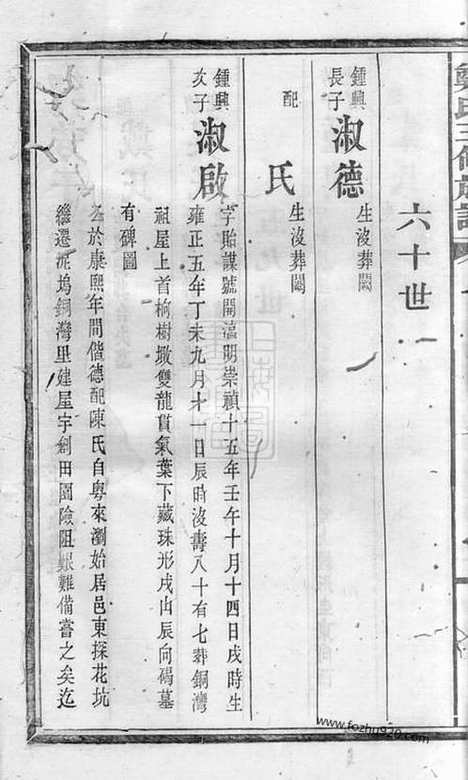 六十世
鍾興長子 淑德 生沒葬闕
配 氏 生沒葬闕
鍾興次子 淑啟 字貽謀號開溫明崇禎十五年壬午十月十四日戌時生
雍正五年丁未九月才一日辰時沒壽八十有七葬銅灣
祖屋上首楠樹墩雙龍貫氣葉下藏珠形戌山辰向碣墓
有碑圖
公於康熙年間偕德配陳氏自粵來瀏始居邑東探花坑
繼遷泥塢銅灣里建屋宇創田園險阻艱難備嘗之矣迄
www.fozhu920.com